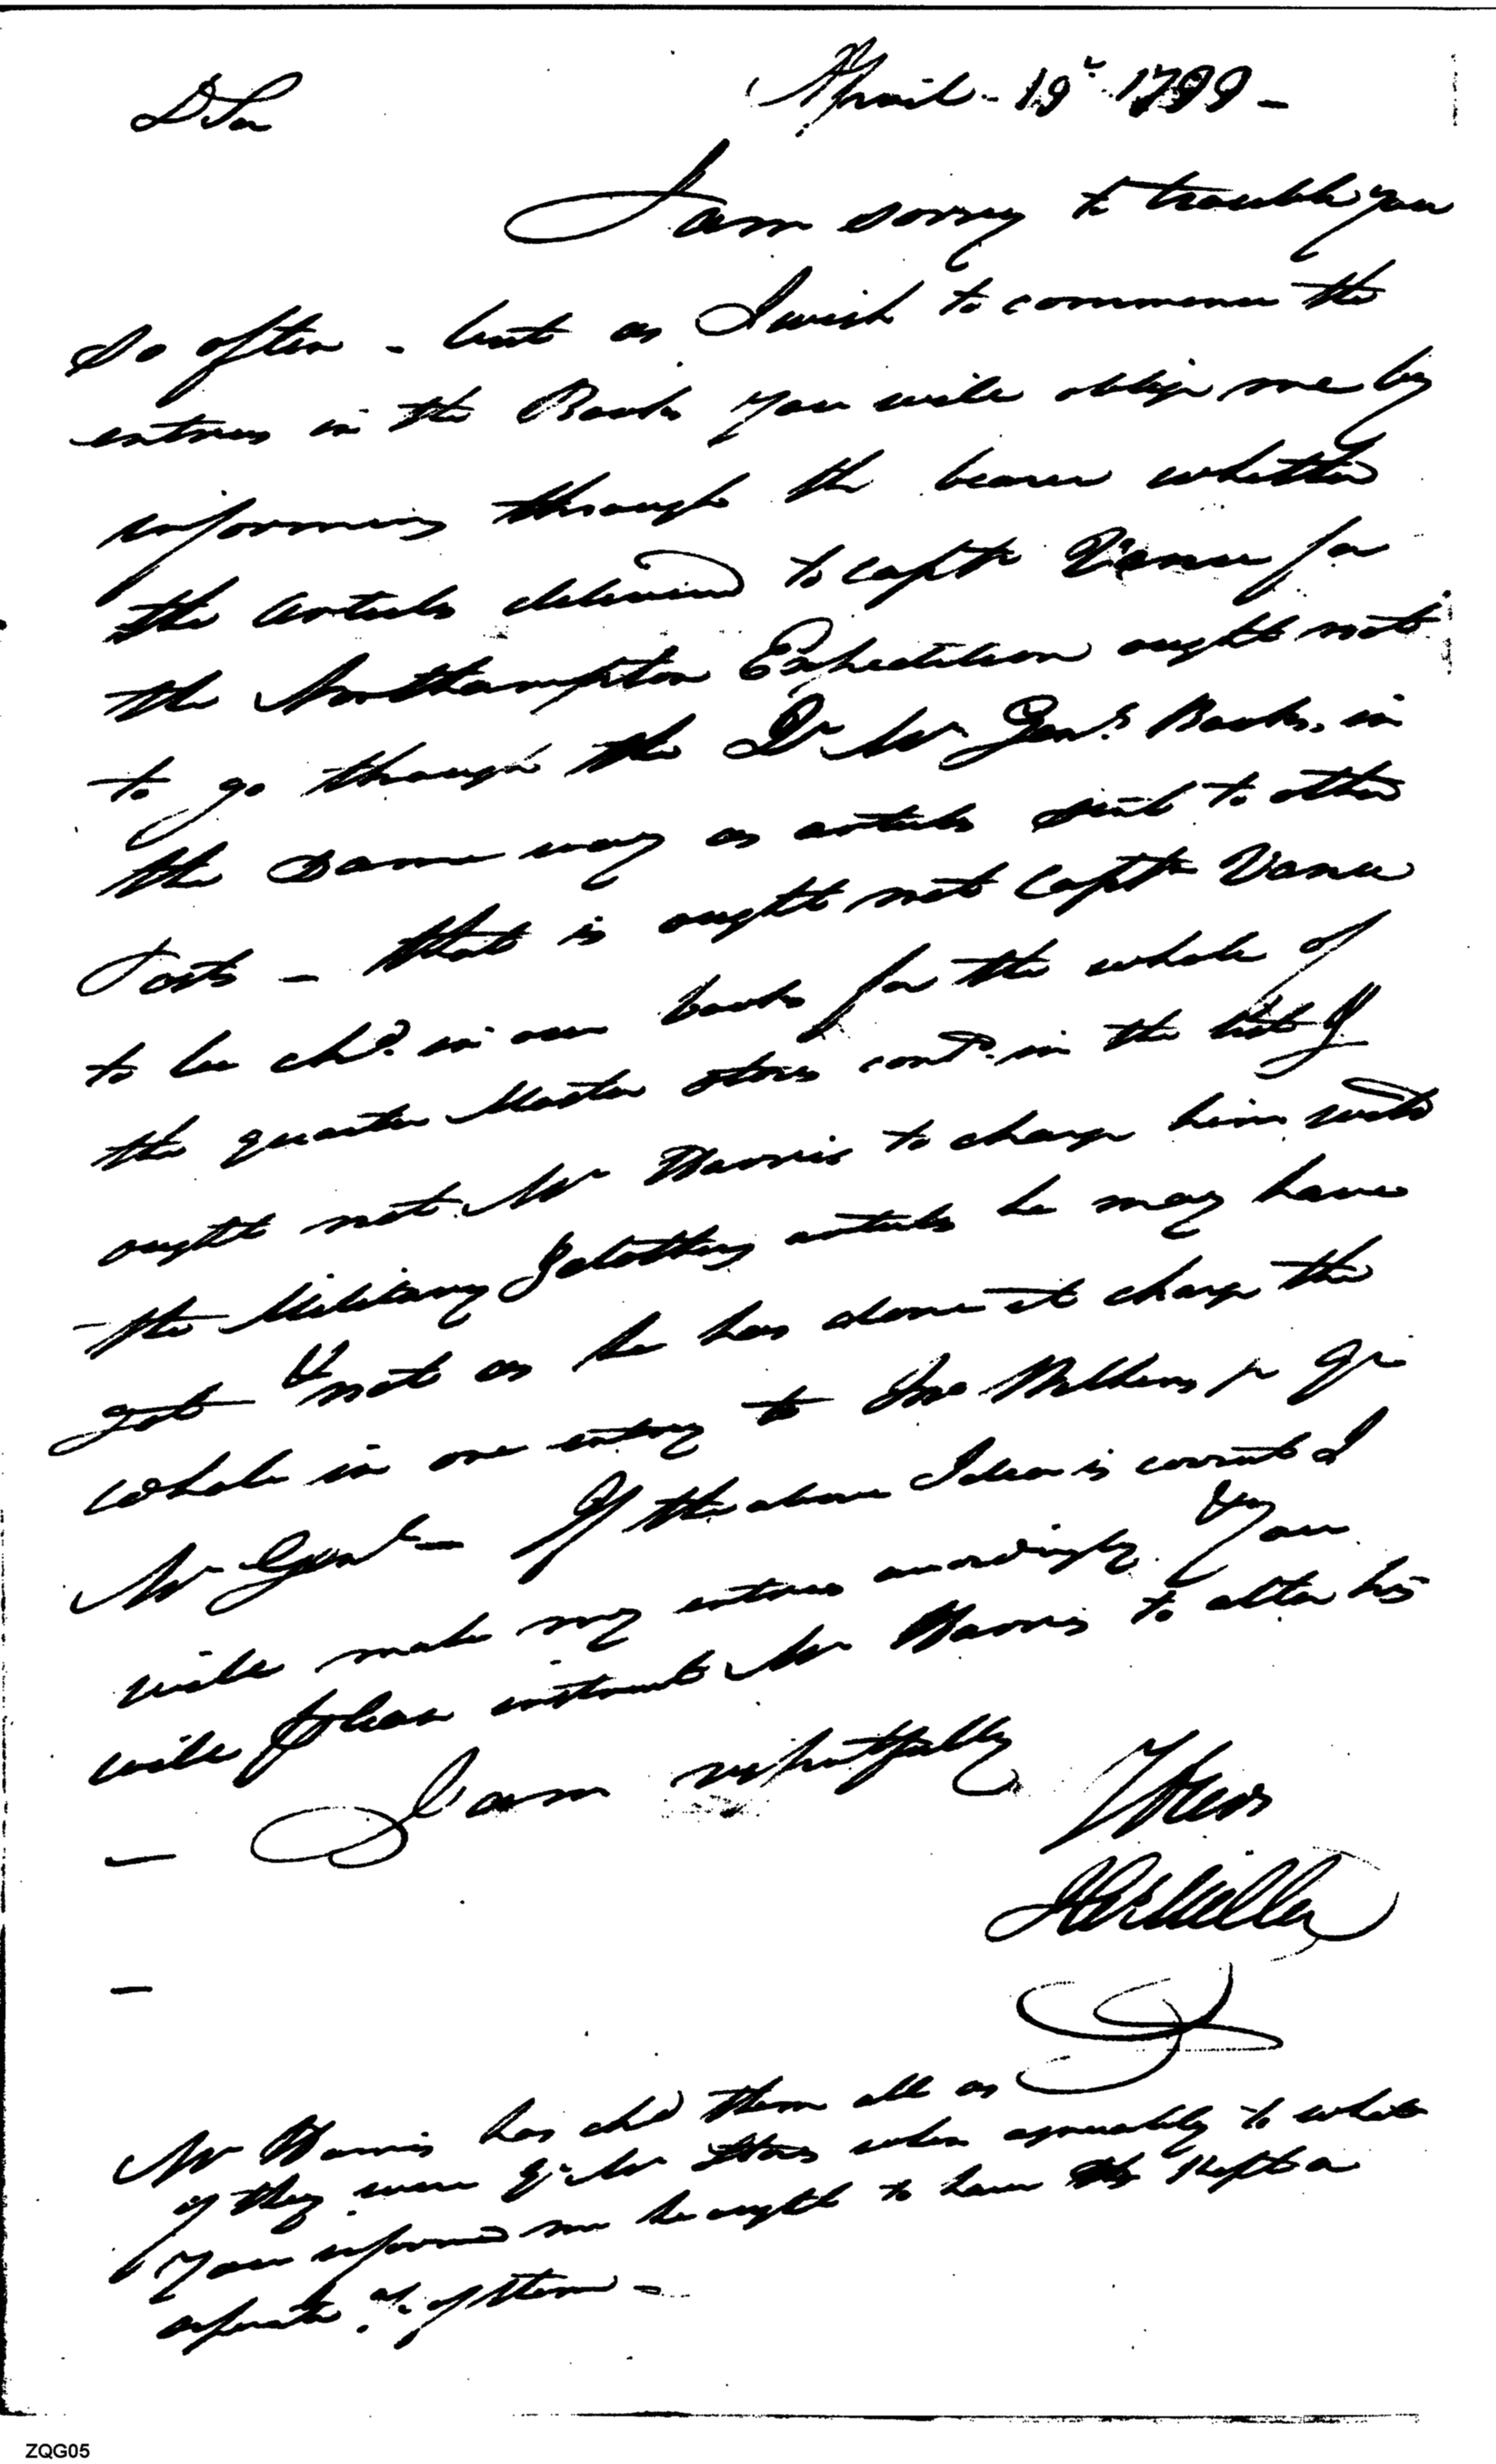 D Sir
April 19th 1799 –
I am sorry to trouble you
so often – but as I wish to commence the
entries in the Books you will oblige me by
informing through the bearer whether
the articles delivered to Capt Vance for
the Northampton Expedition ought not
to go through the Qr Mr Genls Books, in
the same way as articles sent to other
Posts – that is ought not Capt Vance
to be chd. in our books for the whole of
the quarter Master stores contd. in the list &
ought not Mr Harris to charge him with
the Military & Clothing articles he may have
got & not as he has done it charge the
whole in one entry to Jno Wilkins jr Qr
Mr Genl – If the above Idea is correct I
will make my entries accordingly. & you
will please instruct Mr Harris to alter his
– I am respectfully
Yours
Miller
–
Mr Harris has chd them all as
if they were Qr Mr Stores when agreeably to what
you informed me he ought to have kept a
separate a/c. of them –
ZQG05